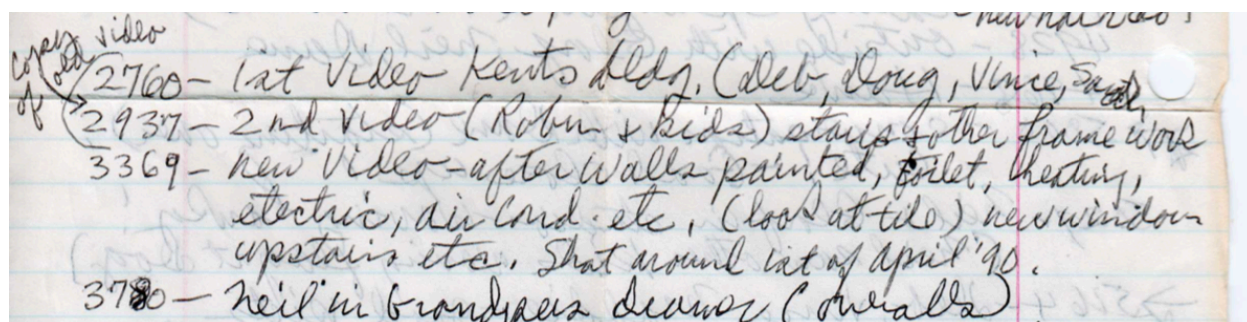 new hairdo!
copy of old video
2760 - 1st Video Kents bldg. (Deb, Doug, Vince,
2937 - 2nd Video (Robin & Kids) stairs & other frame work
3369 - new Video - after walls painted, toilet, heating,
electric, air cond. etc, (look at tile) new window
upstairs etc. Shot around 1st of April '90.
3780 - Neil in Grandpas (overalls)